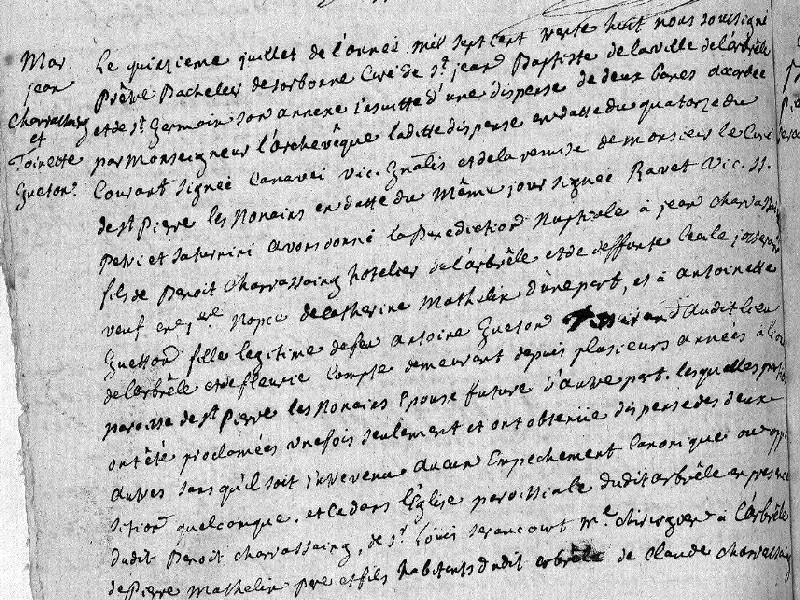 Mar.
jean
Charvassaing
et
Toinette
Gueton.
Le quinzieme juillet de l'année mil sept cent trente huit nous soussigné
Prêtre Bachelier de sorbonne Curé de St. jean Baptiste de la ville de l'arbrêle
et de St Germain son annexe ensuitte d'une dispense de deux bans accordée
par Monseigneur l'archevêque laditte dispense en datte du quatorze du
Courant signée vic. gnâlis et de la remise de monsieur le Curé
de st Pierre les Nonains en datte du Même jour signée Ravet vic. SS.
Petri et saturnini avons donné la Benediction Nuptiale à jean charvassaing
fils de Benoit Charvassaing hotelier de l'arbrêle et de deffunte
veuf en 1re Nopce de Catherine Mathelin d'une part, et à antoinette
Guetton fille legitime de feu antoine Gueton dudit lieu
de larbrêle et de fleurie Compte demeurant depuis plusieurs années à lion
paroisse de st Pierre les Nonains Epouse future d'autre part. lesquelles parties
ont été proclamées une fois seulement et ont obtenüe dispense des deux
autres sans qu'il soit intervenu aucun Empechement Canonique ou oppo
sition quelconque. et ce dans l'Eglise paroissiale dudit arbrêle en presence
dudit Benoit charvassaing, de sr. Louis me. chirurgien à l'arbrêle
de Pierre Mathelin pere et fils habitants dudit arbrêle de Claude Charvassaing